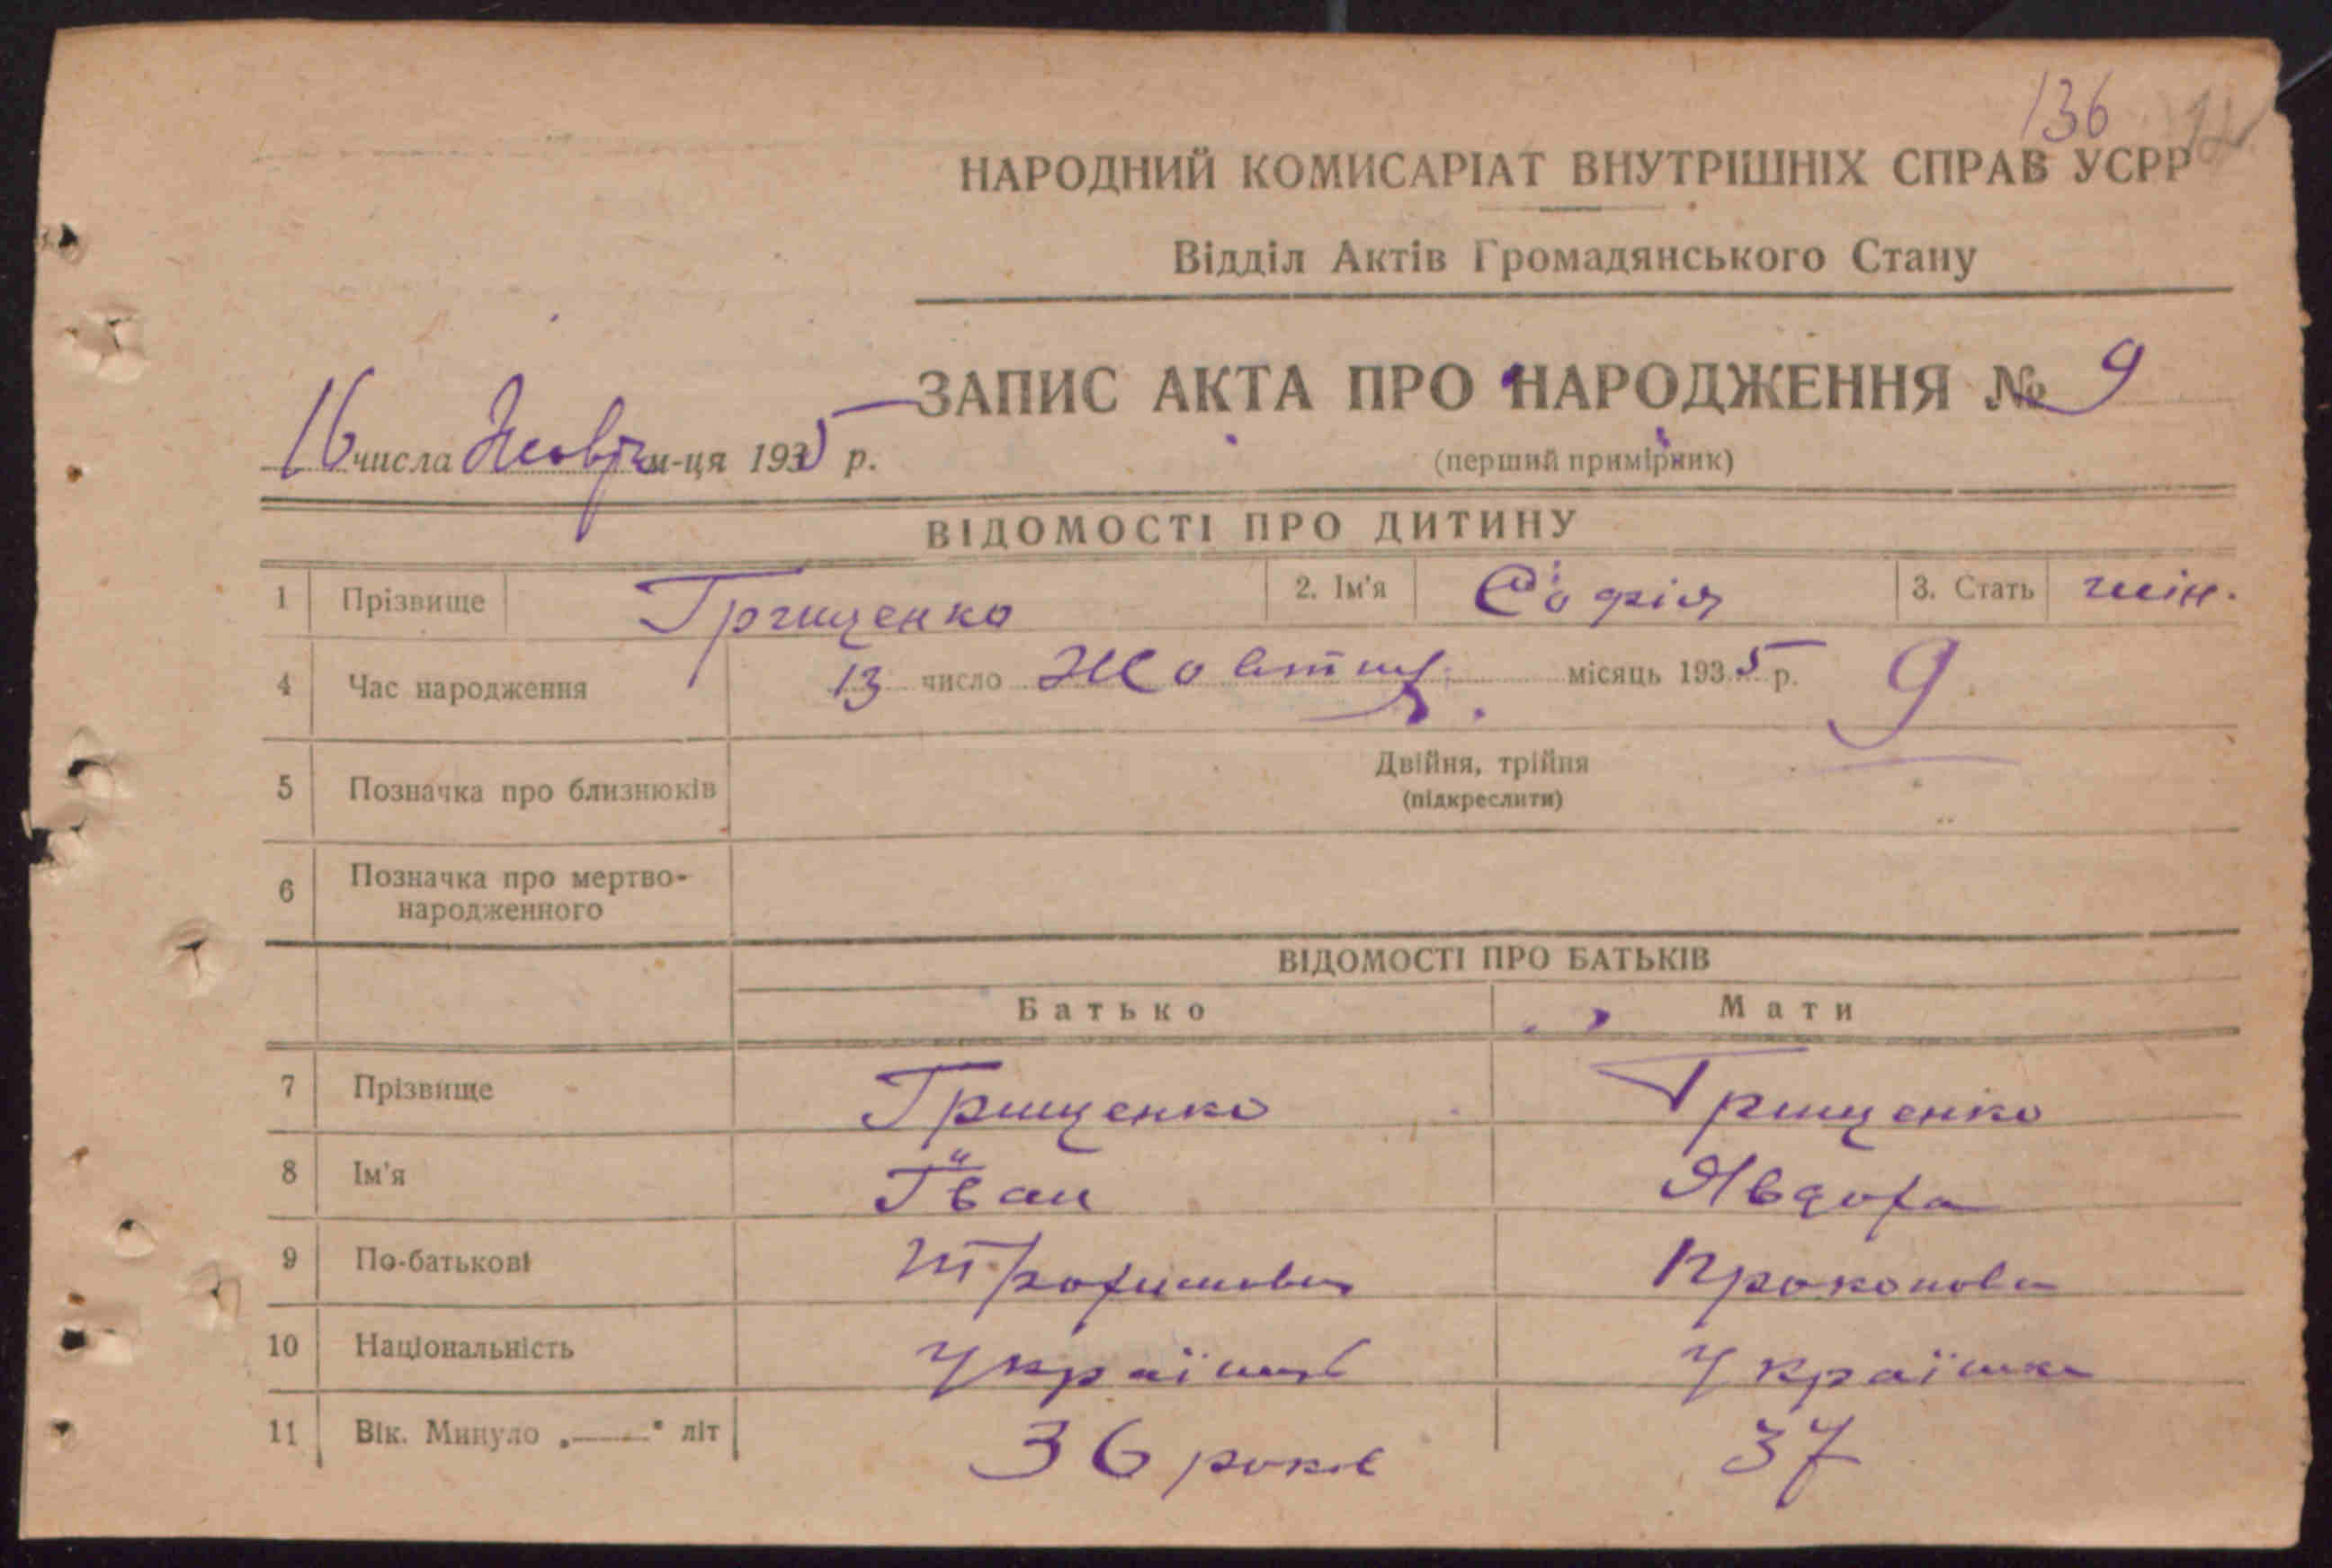 136
НАРОДНИЙ КОМИСАРІАТ ВНУТРІШНІХ СПРАВ УСРР
Відділ Актів Громадянського Стану
ЗАПИС АКТА ПРО НАРОДЖЕННЯ № 9
16 числа м-ця 1935 р.
(перший примірник)
ВІДОМОСТІ ПРО ДИТИНУ
1 Прізвище Грищенко 2. Ім'я Софія 3. Стать жін.
4 Час народження 13 число Жовтня місяць 1935 р. 9
5 Позначка про близнюків Двійня, трійня
(підкреслити)
6 Позначка про мертво-
народженного
ВІДОМОСТІ ПРО БАТЬКІВ
Батько Мати
7 Прізвище Грищенко Грищенко
8 Ім'я Іван Явдоха
9 По-батькові Трофимович Прокопова
10 Національність Українець Українка
11 Вік. Минуло „——" літ 36 років 37